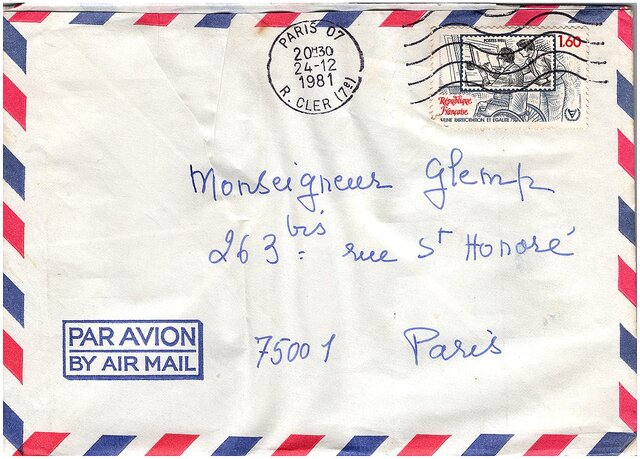 PARIS 07
20H30
24-12
1981
R. CLER (7e)
POSTES 1981
1.60
République
Française
PLEINE PARTICIPATION ET ÉGALITÉ
Monseigneur Glemp
263 bis rue St Honoré
75001 Paris
PAR AVION
BY AIR MAIL